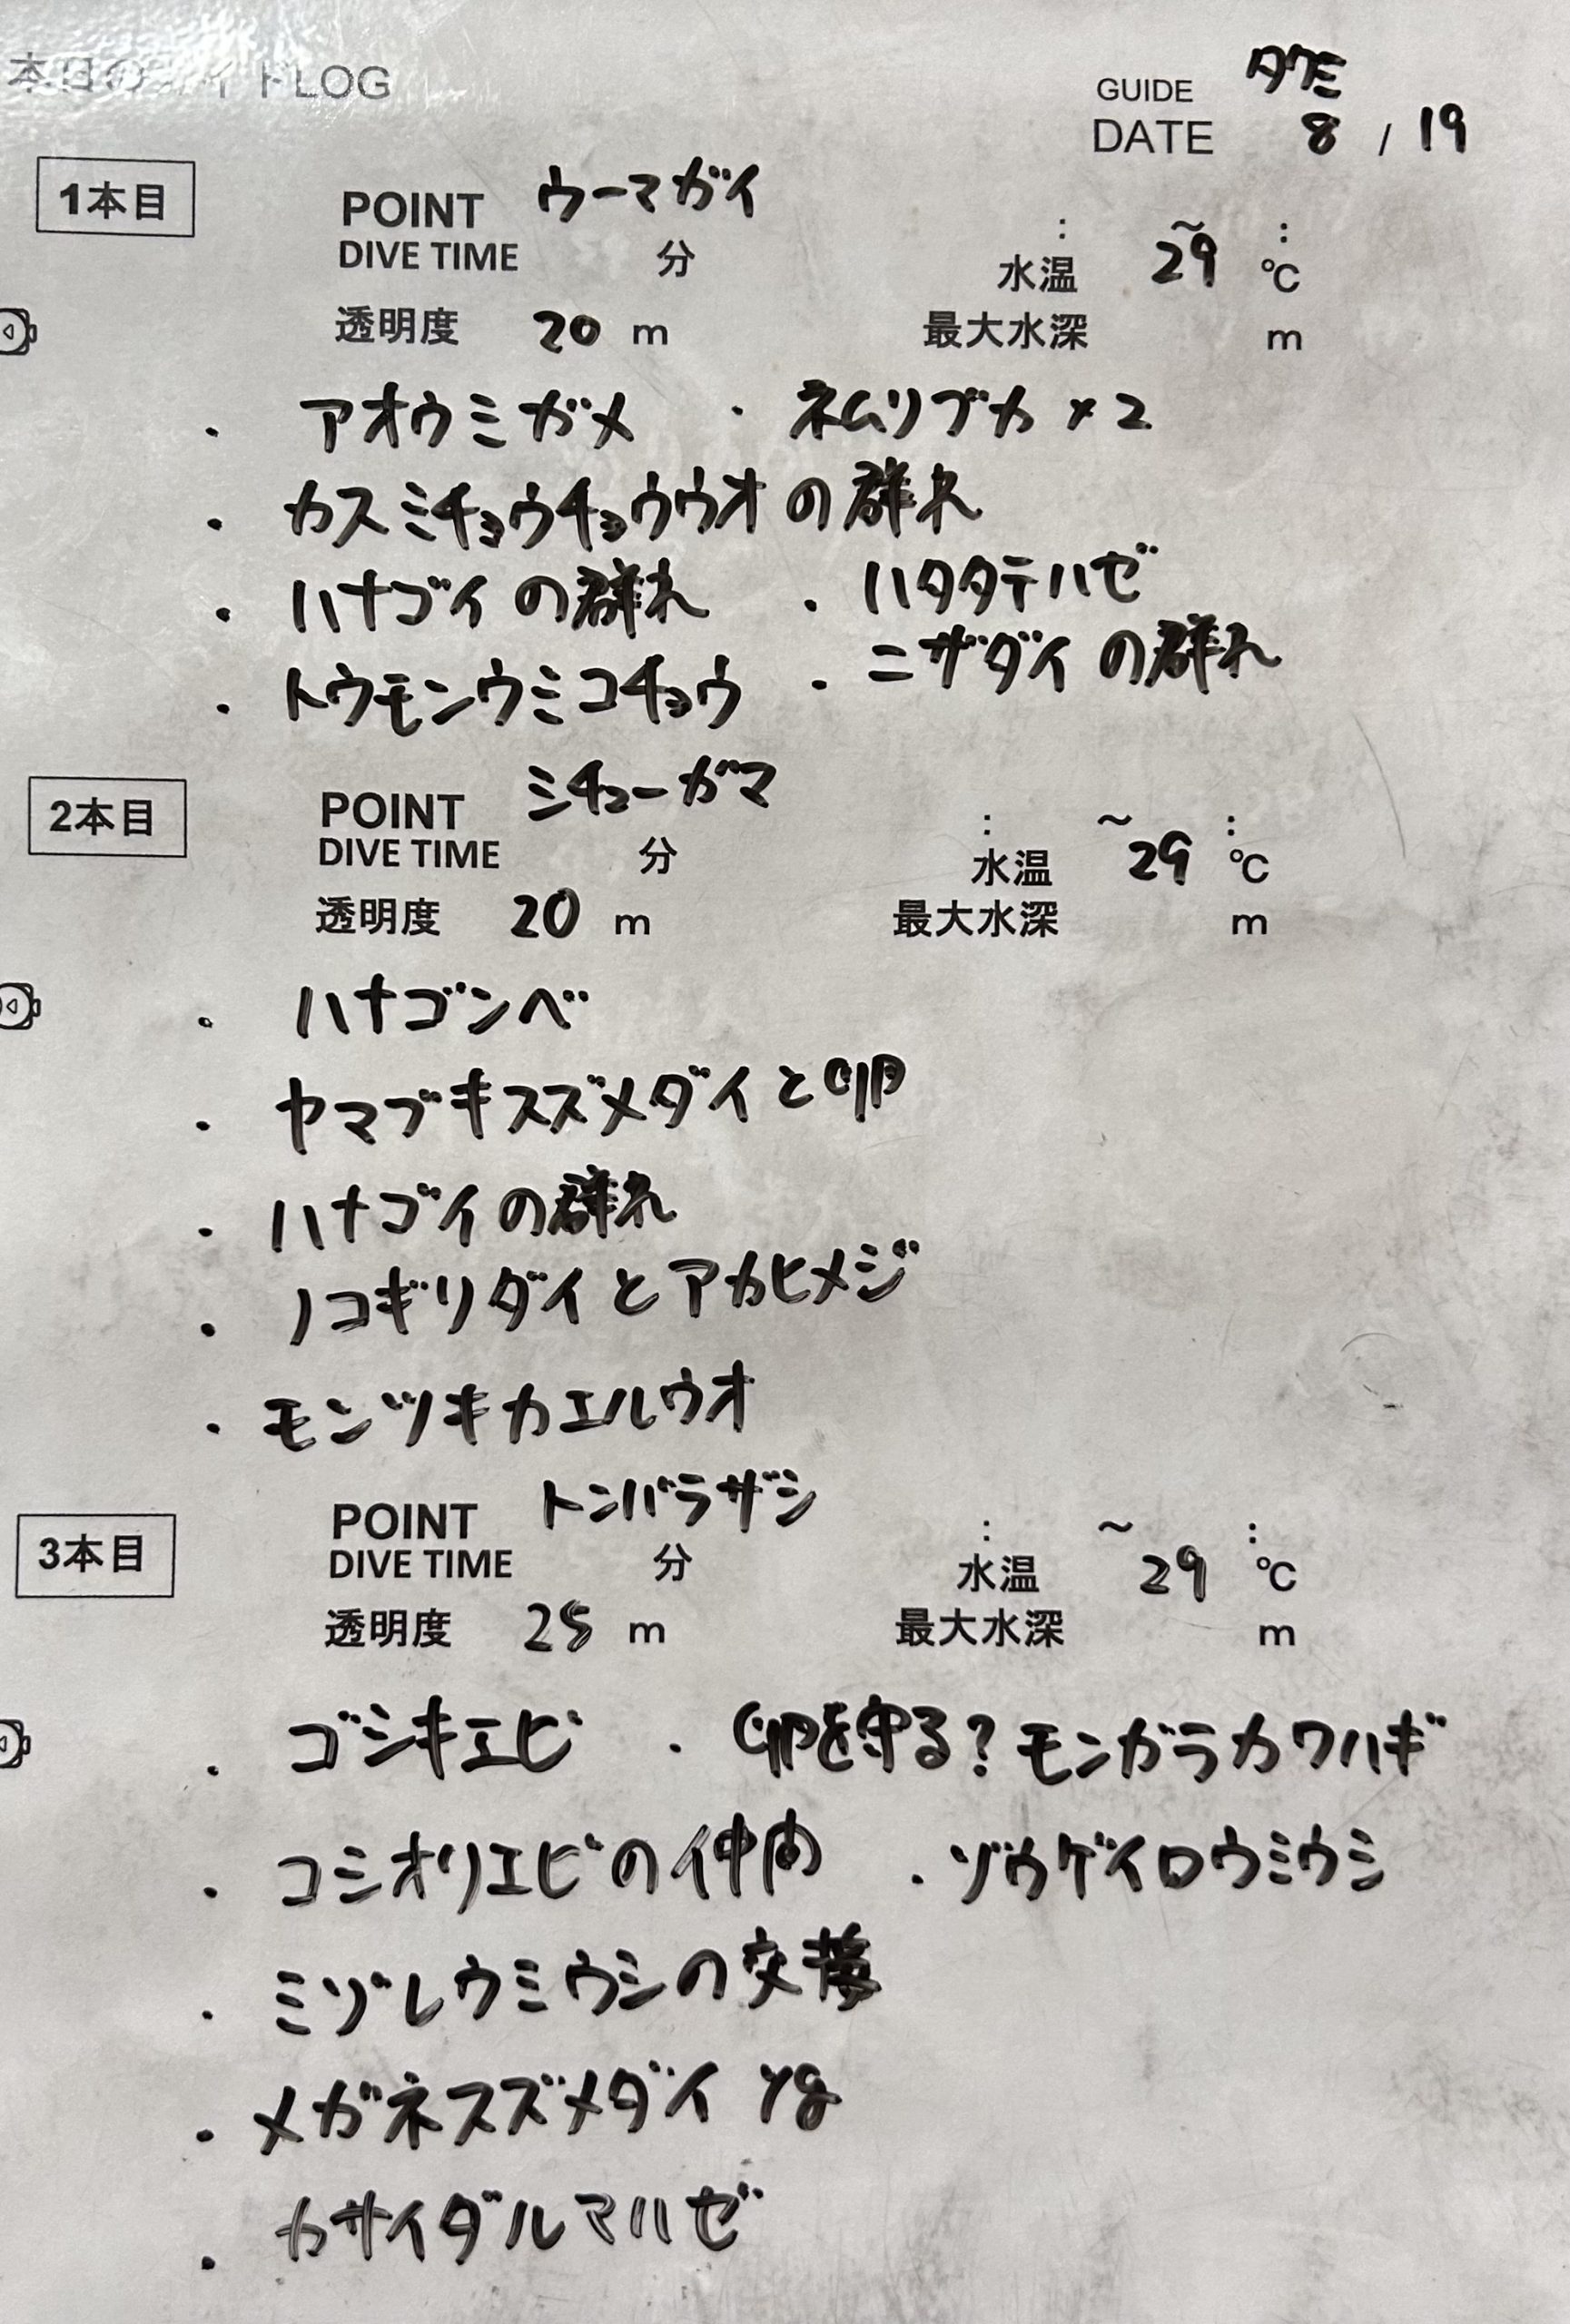 本日のガイドLOG
GUIDE タクミ
DATE 8 / 19
1本目 POINT ウーマガイ
: ~ :
DIVE TIME 分 水温 29 ℃
透明度 20 m 最大水深 m
・ アオウミガメ ・ ネムリブカ ×2
・ カスミチョウチョウウオの群れ
・ ハナゴイの群れ ・ ハタタテハゼ
・ トウモンウミコチョウ ・ ニザダイの群れ
2本目 POINT ミチューガマ
: ~ :
DIVE TIME 分 水温 29 ℃
透明度 20 m 最大水深 m
・ ハナゴンベ
・ ヤマブキスズメダイと卵
・ ハナゴイの群れ
・ ノコギリダイとアカヒメジ
・ モンツキカエルウオ
3本目 POINT トンバラザシ
: ~ :
DIVE TIME 分 水温 29 ℃
透明度 25 m 最大水深 m
・ ゴシキエビ ・ 卵を守る?モンガラカワハギ
・ コシオリエビの仲間 ・ ゾウゲイロウミウシ
・ ミゾレウミウシの交接
・ メガネスズメダイ yg
・ カサイダルマハゼ